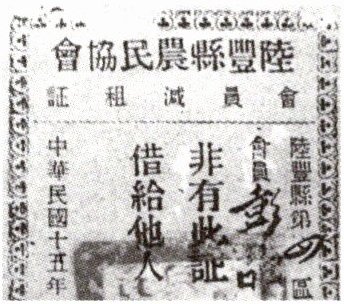 陸豐縣農民協會
會員減租証
陸豐縣第四區
會員彭口
非有此証
借給他人
中華民國十五年